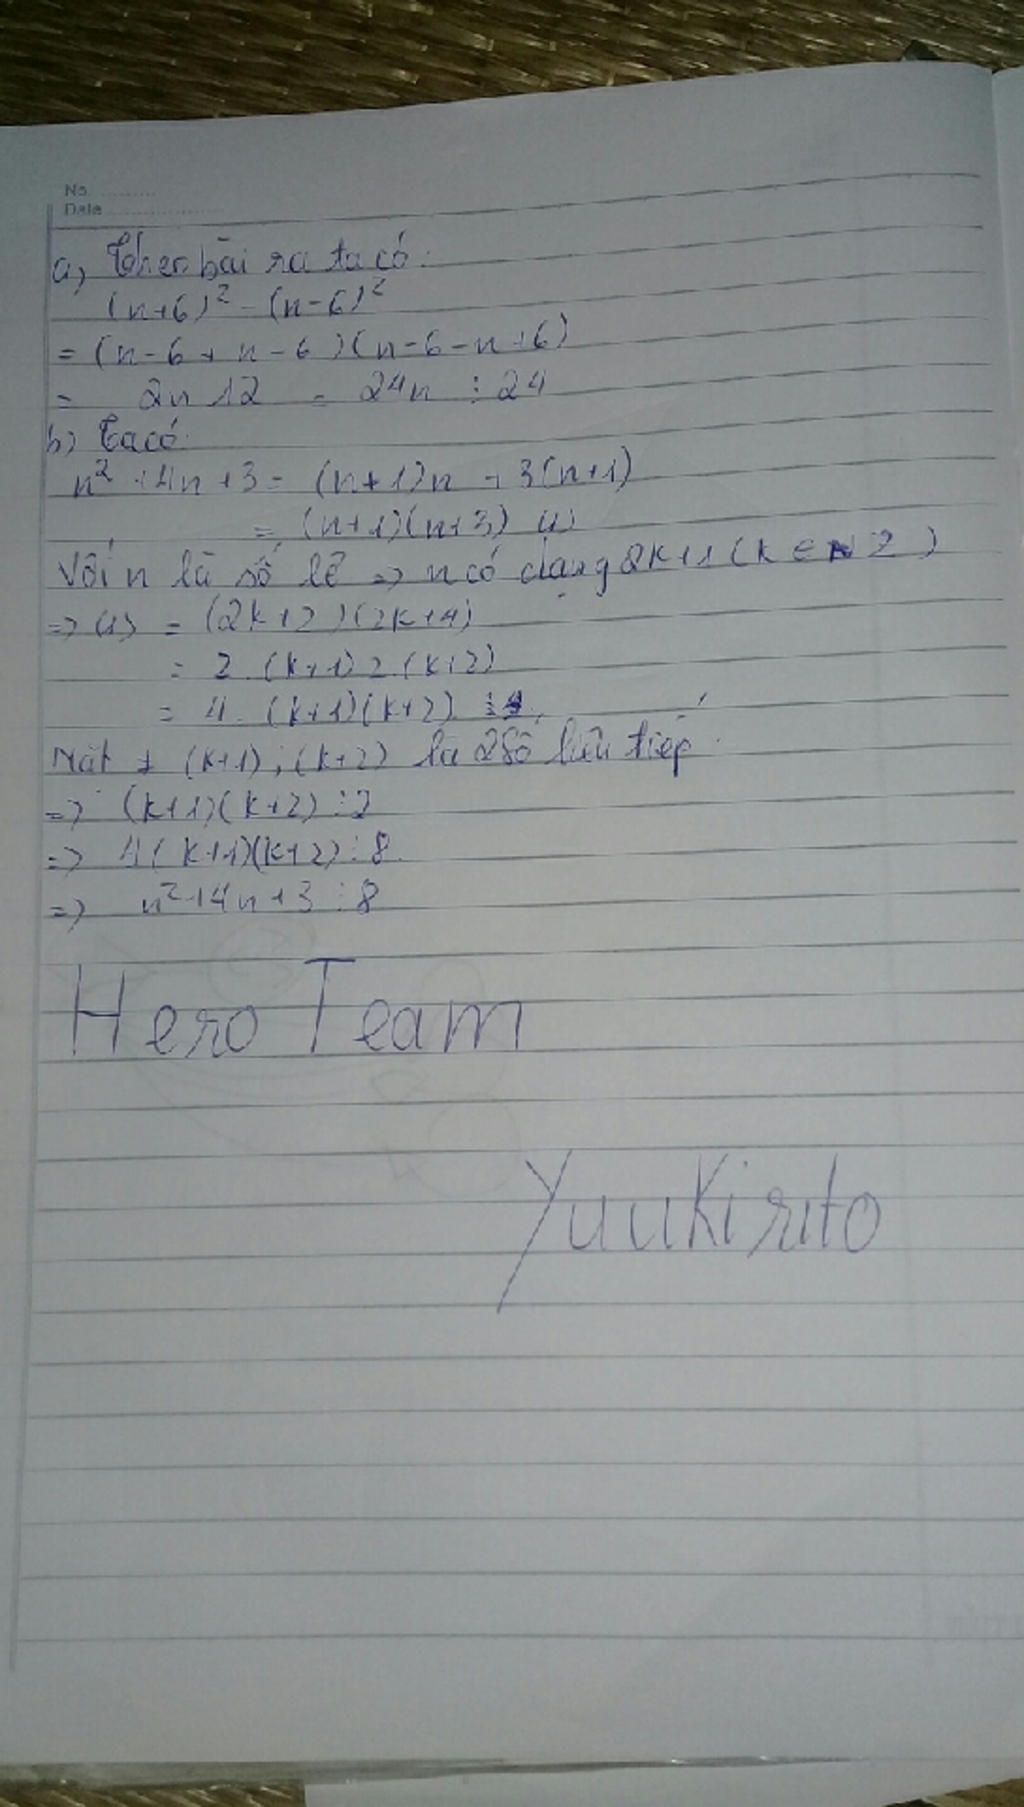 No
Date
a, Theo bài ra ta có:
(n+6)² - (n-6)²
= (n-6+n-6)(n-6-n+6)
= 2n 12 = 24n ⋮ 24
b) Ta có:
n² + 4n + 3 = (n+1)n + 3(n+1)
= (n+1)(n+3) (1)
Với n là số lẻ => n có dạng 2k+1 (k ∈ Z)
=> (1) = (2k+2)(2k+4)
= 2.(k+1)2.(k+2)
= 4.(k+1)(k+2) ⋮ 4
Mặt ≠ (k+1); (k+2) là 2 số liên tiếp
=> (k+1)(k+2) ⋮ 2
=> 4(k+1)(k+2) ⋮ 8
=> n²+4n+3 ⋮ 8
Hero Team
YuuKirito